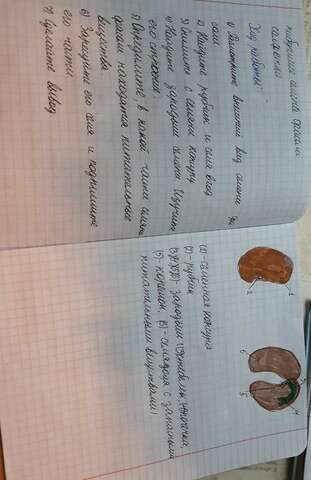 набухшие семена фасоли
салфетки
Ход работы:
1) Рассмотрите внешний вид семени
2) Найдите рубчик и семявход
3) Снимите с семени кожуру
4) Найдите зародыш семени. Изучите
его строение
5) Определите, в какой части семени
фасоли находятся питательные
вещества
6) Зарисуйте его семя и подпишите
его части
7) Сделайте вывод
(1) - семенная кожура
(2) - рубчик
зародыш
(5) - корешок, (6) - семядоля с запасными
питательными веществами)
1
2
6
5
3
4